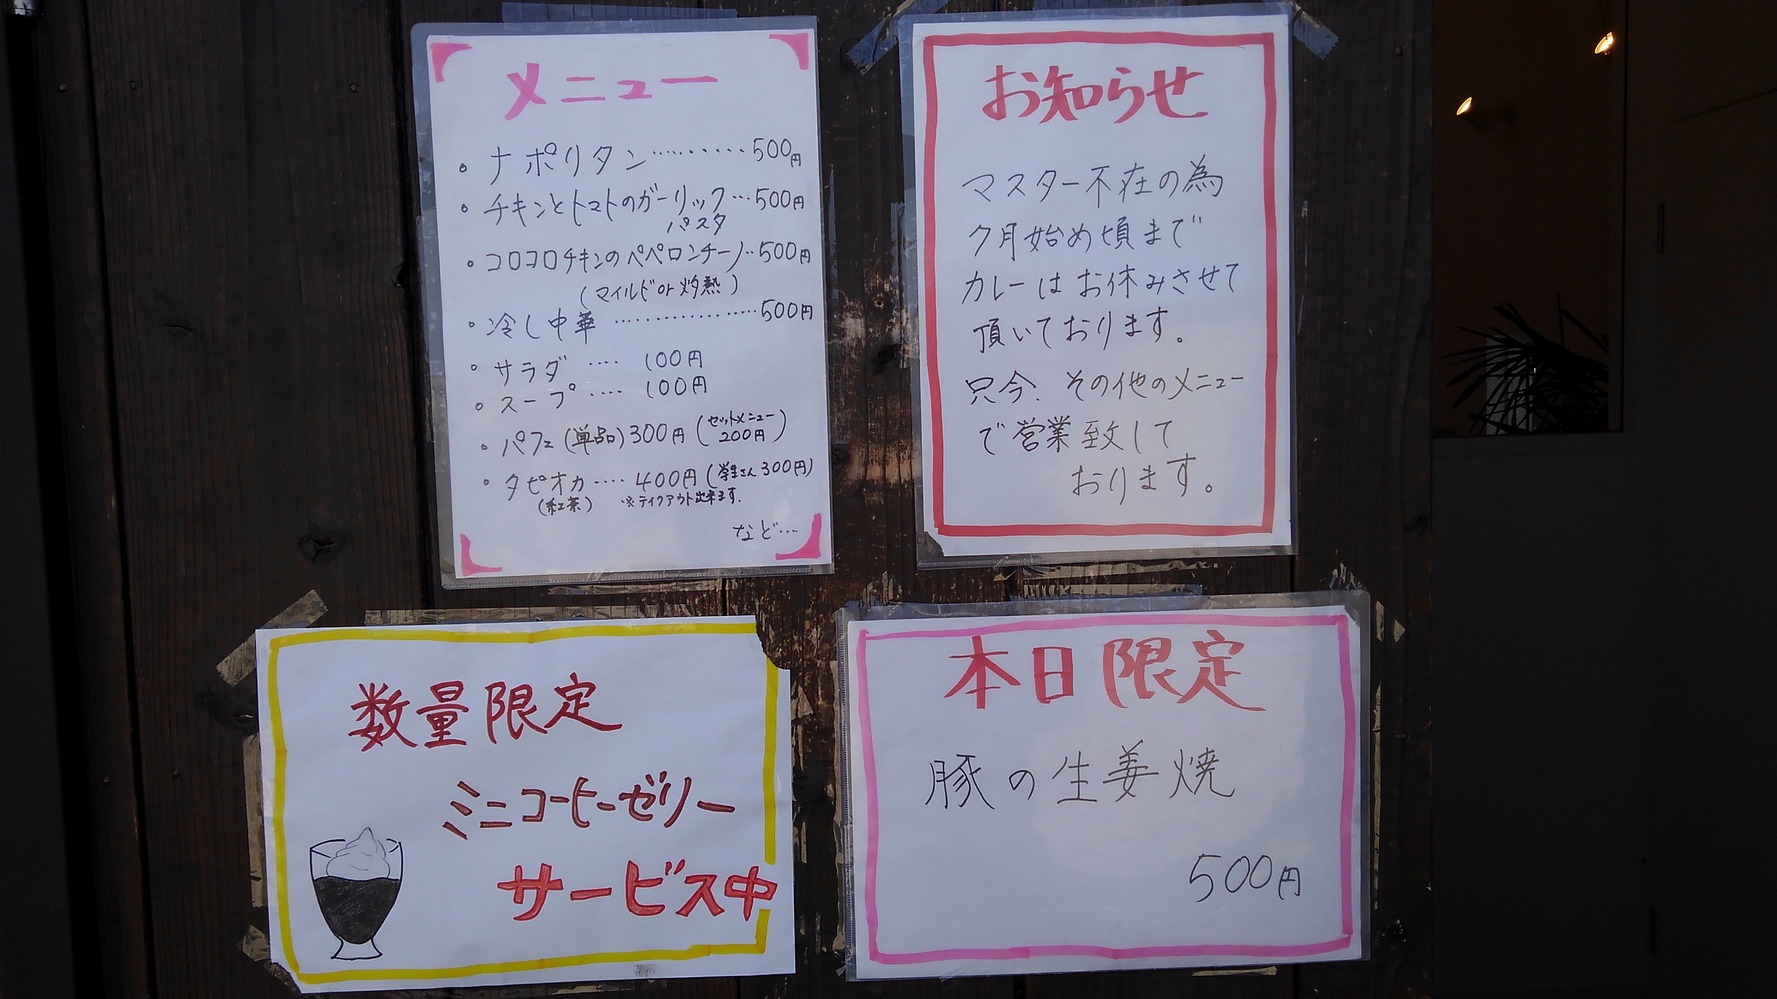 メニュー
・ナポリタン………500円
・チキンとトマトのガーリック…500円
パスタ
・コロコロチキンのペペロンチーノ‥500円
(マイルドor灼熱)
・冷し中華………………500円
・サラダ…‥100円
・スープ…‥100円
・パフェ(単品)300円(セットメニュー
200円)
・タピオカ…‥400円(学生さん300円)
(紅茶) ※テイクアウト出来ます.
など…
お知らせ
マスター不在の為
7月始め頃まで
カレーはお休みさせて
頂いております。
只今、その他のメニュー
で営業致して
おります。
数量限定
ミニコーヒーゼリー
サービス中
本日限定
豚の生姜焼
500円